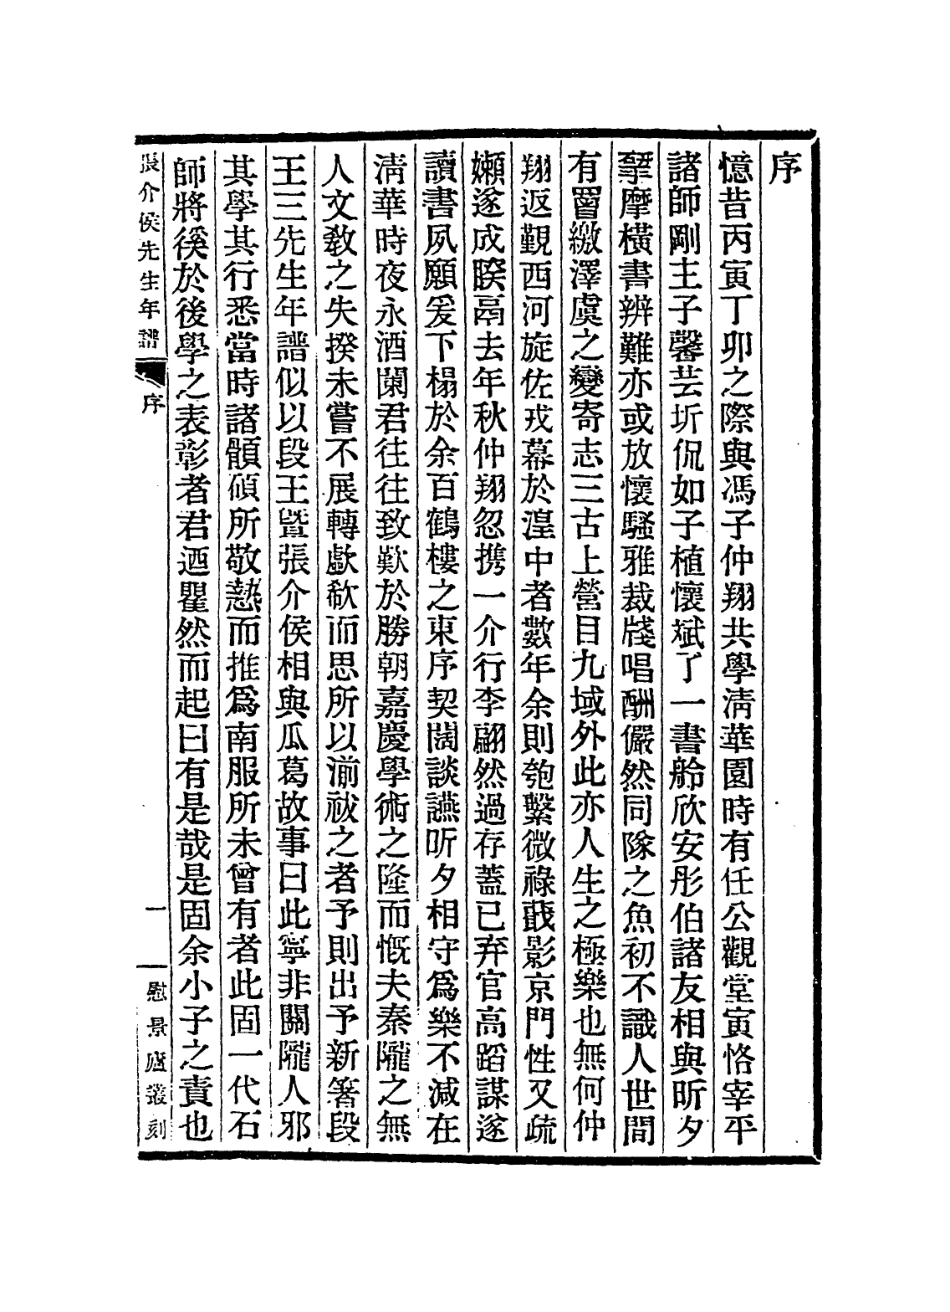 序
憶昔丙寅丁卯之際與馮子仲翔共學清華園時有任公觀堂寅恪宰平
諸師剛主子馨芸圻侃如子植懷斌了一書舲欣安彤伯諸友相與昕夕
揅摩橫書辨難亦或放懷騷雅裁牋唱酬儼然同隊之魚初不識人世間
有罾繳澤虞之變寄志三古上營目九域外此亦人生之極樂也無何仲
翔返覲西河旋佐戎幕於湟中者數年余則匏繫微祿戢影京門性又疏
嬾遂成睽鬲去年秋仲翔忽携一介行李翩然過存蓋已弃官高蹈謀遂
讀書夙願爰下榻於余百鶴樓之東序契闊談讌昕夕相守爲樂不減在
清華時夜永酒闌君往往致歎於勝朝嘉慶學術之隆而慨夫秦隴之無
人文敎之失揆未嘗不展轉歔欷而思所以湔祓之者予則出予新箸段
王三先生年譜似以段王曁張介侯相與瓜葛故事曰此寧非關隴人邪
其學其行悉當時諸顀碩所敬慹而推爲南服所未曾有者此固一代石
師將徯於後學之表彰者君迺瞿然而起曰有是哉是固余小子之責也
張介侯先生年譜 序 一 慰景廬叢刻